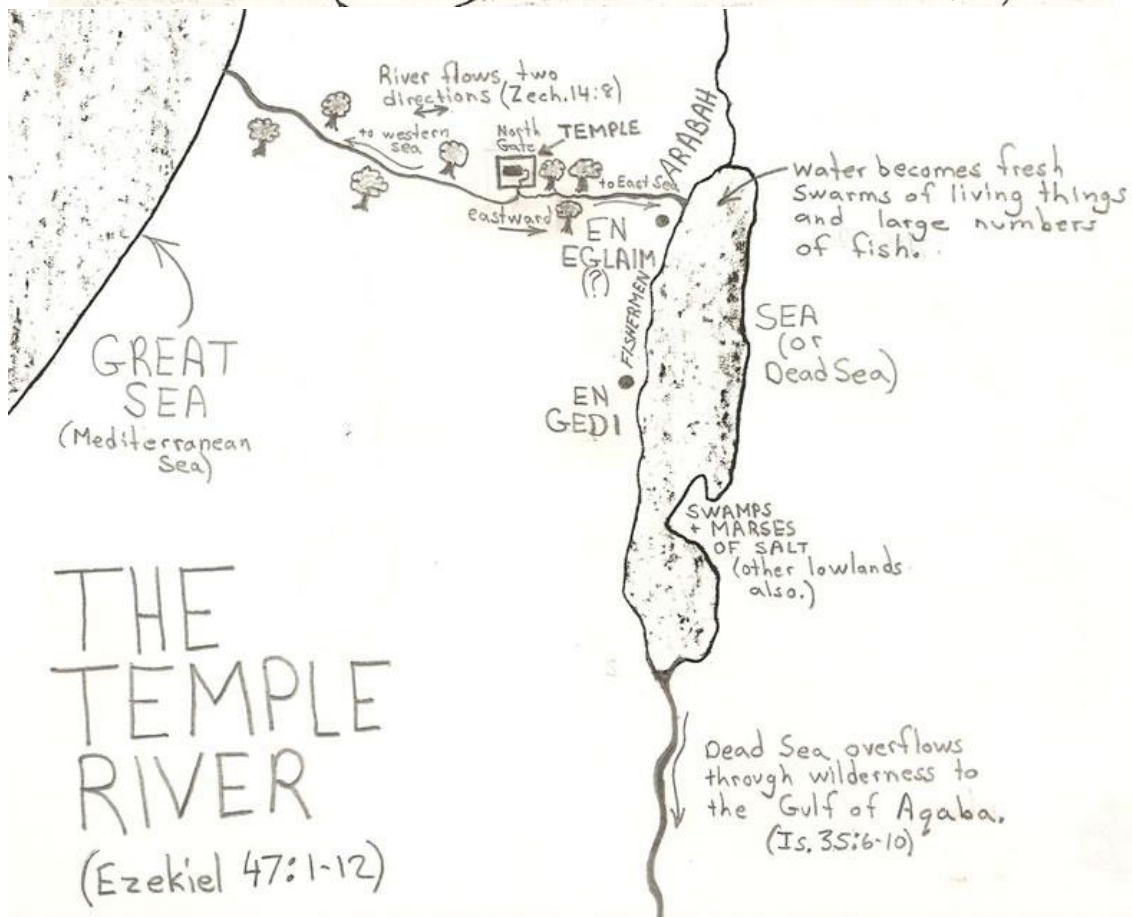 River flows, two
directions (Zech.14:8)
to western
sea
North
Gate
TEMPLE
ARABAH
to East Sea
eastward
EN
EGLAIM
(?)
FISHERMEN
EN
GEDI
water becomes fresh
Swarms of living things
and large numbers
of fish.
SEA
(or
Dead Sea)
GREAT
SEA
(Mediterranean
Sea)
SWAMPS
+ MARSES
OF SALT
(other lowlands
also.)
THE
TEMPLE
RIVER
(Ezekiel 47:1-12)
Dead Sea overflows
through wilderness to
the Gulf of Aqaba.
(Is. 35:6-10)